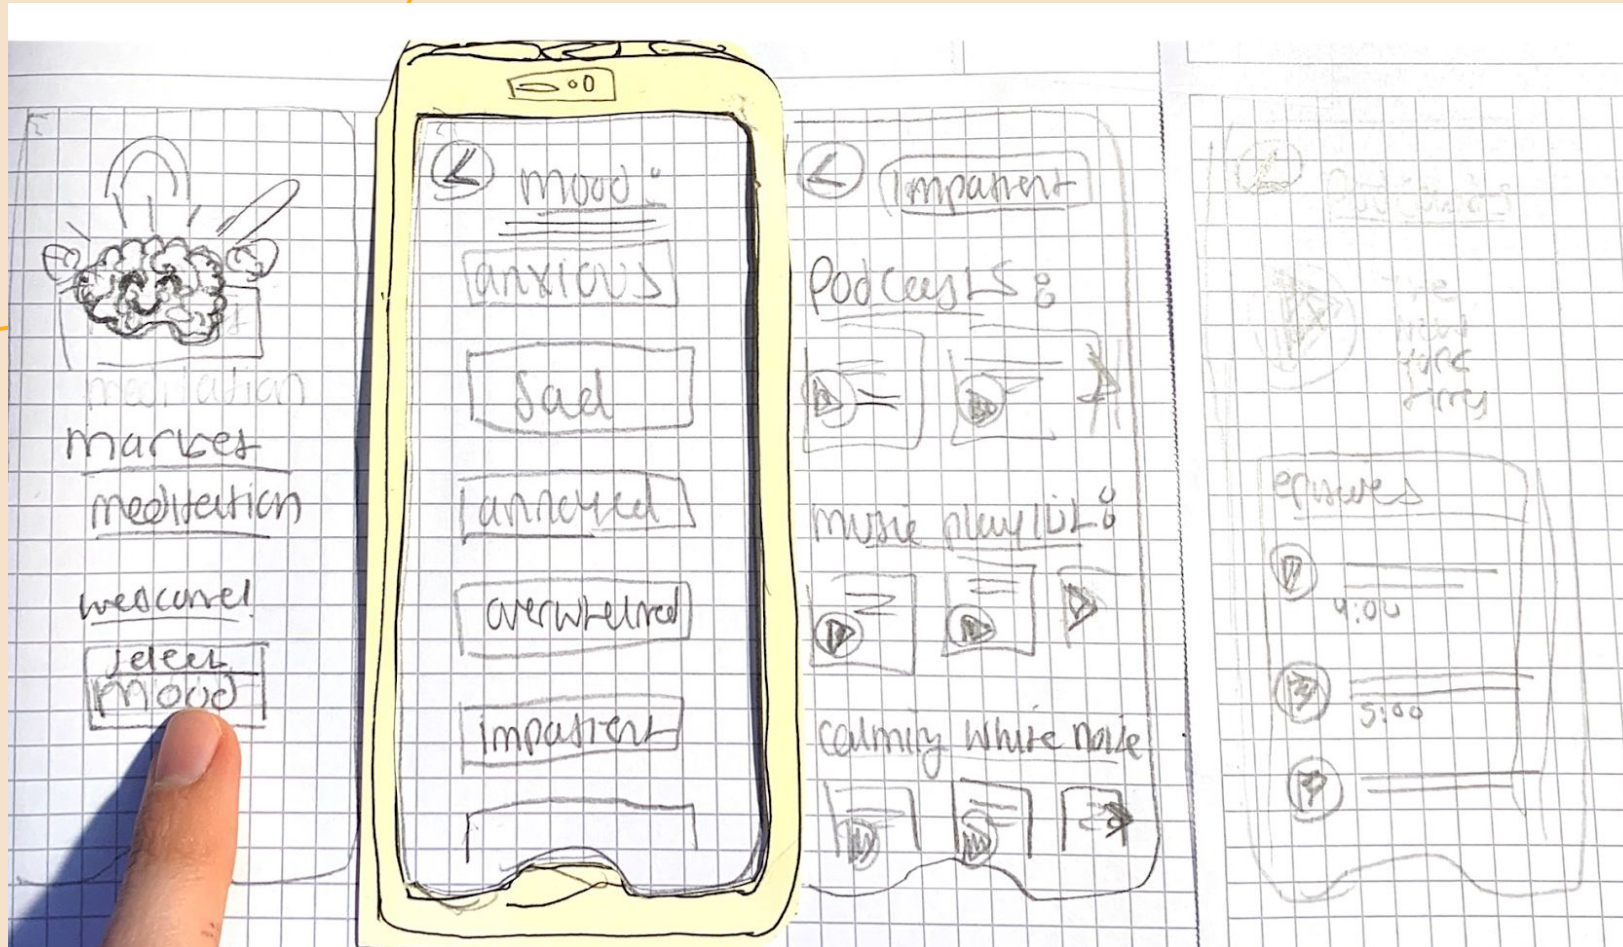 meditation
market
meditation
welcome!
select
mood
mood:
anxious
sad
annoyed
overwhelmed
impatient
impatient
Podcasts:
music playlist:
calming white noise
podcasts:
episodes
4:00
5:00